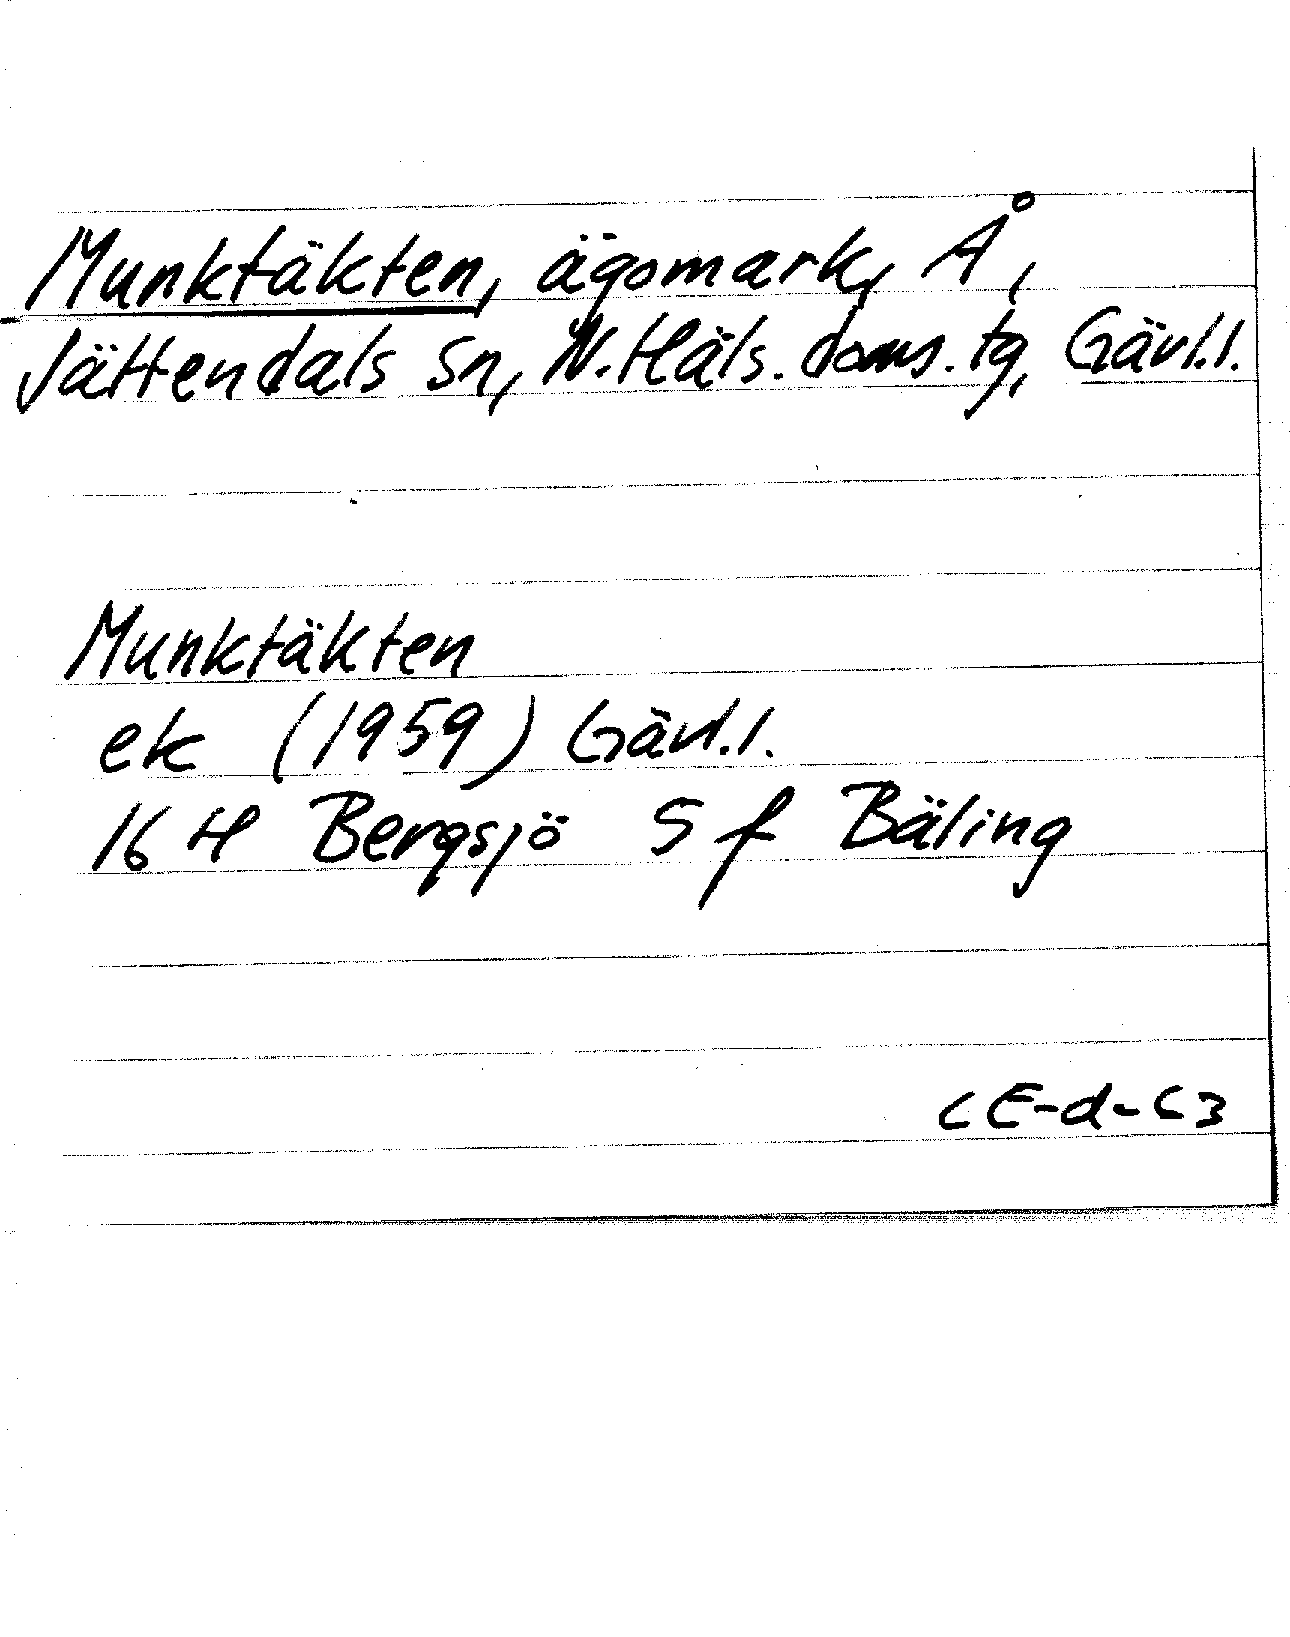 Munktäkten, ägomark, Å,
Jättendals sn, N. Häls. doms. tg, Gävl.l.
Munktäkten
ek (1959) Gävl.l.
16 H Bergsjö S f Bäling
CE-d-C3